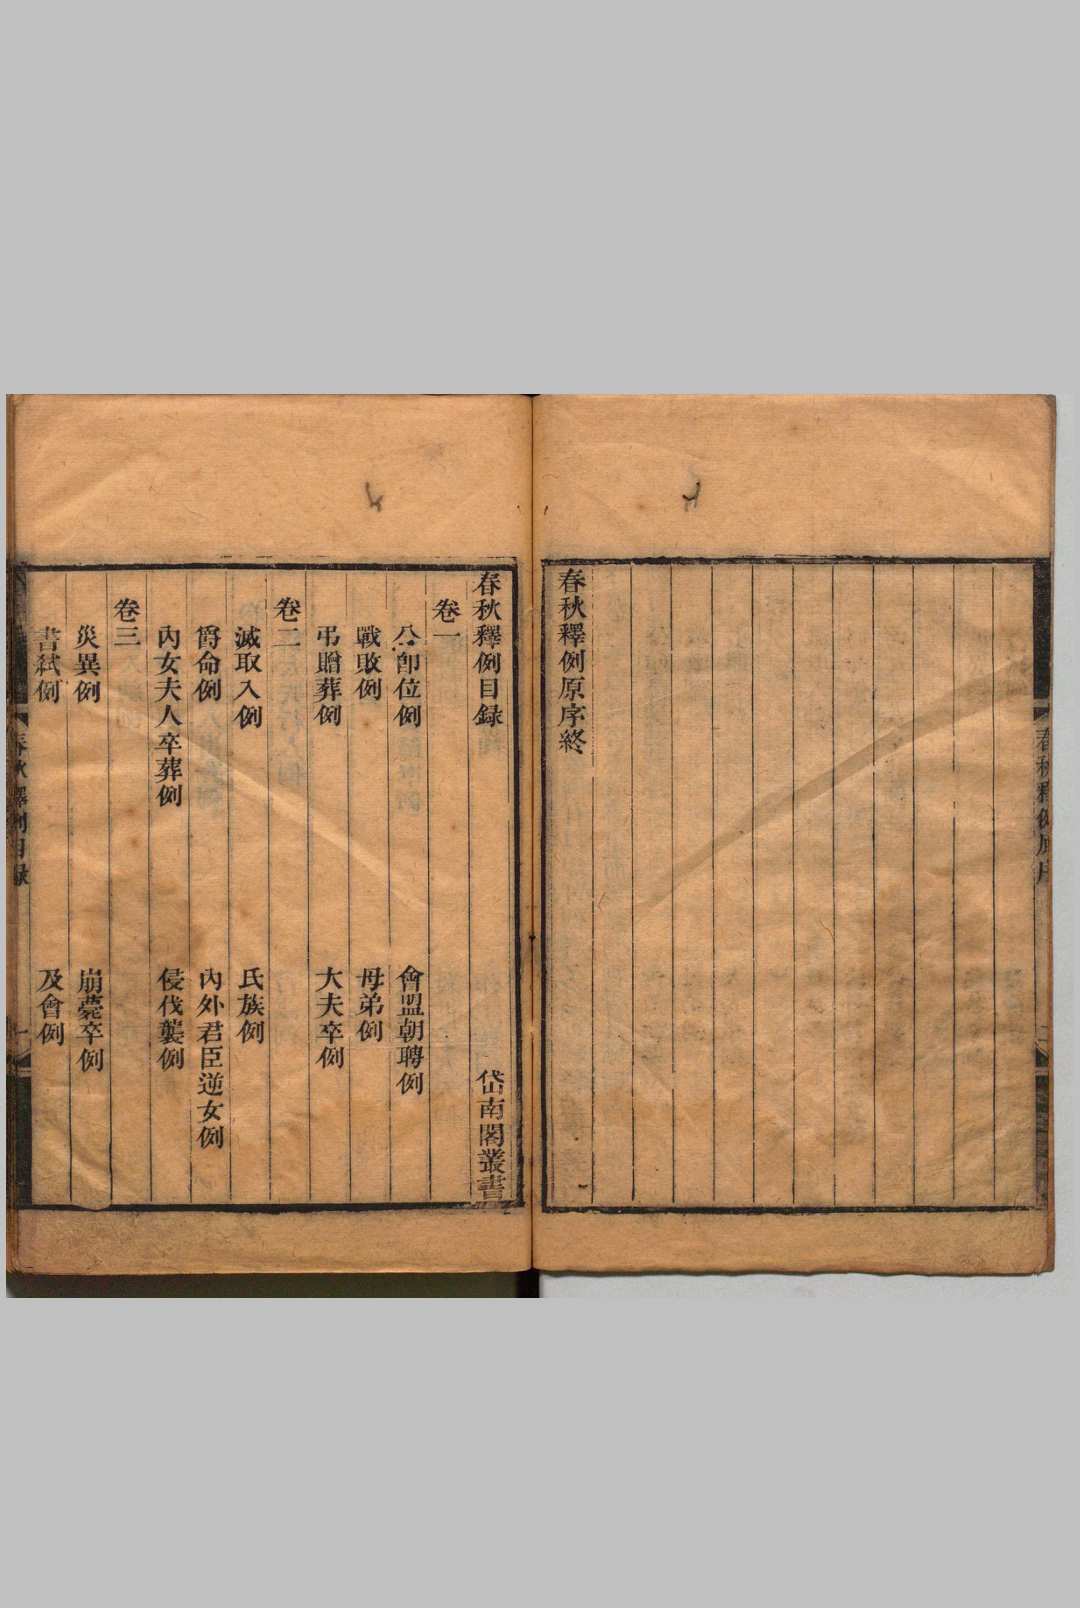 春秋釋例原序終
春秋釋例目録
岱南閣叢書
卷一
公即位例
會盟朝聘例
戰敗例
母弟例
弔贈葬例
大夫卒例
卷二
滅取入例
氏族例
爵命例
內外君臣逆女例
內女夫人卒葬例
侵伐襲例
卷三
災異例
崩薨卒例
書弑例
及會例
春秋釋例目録
一